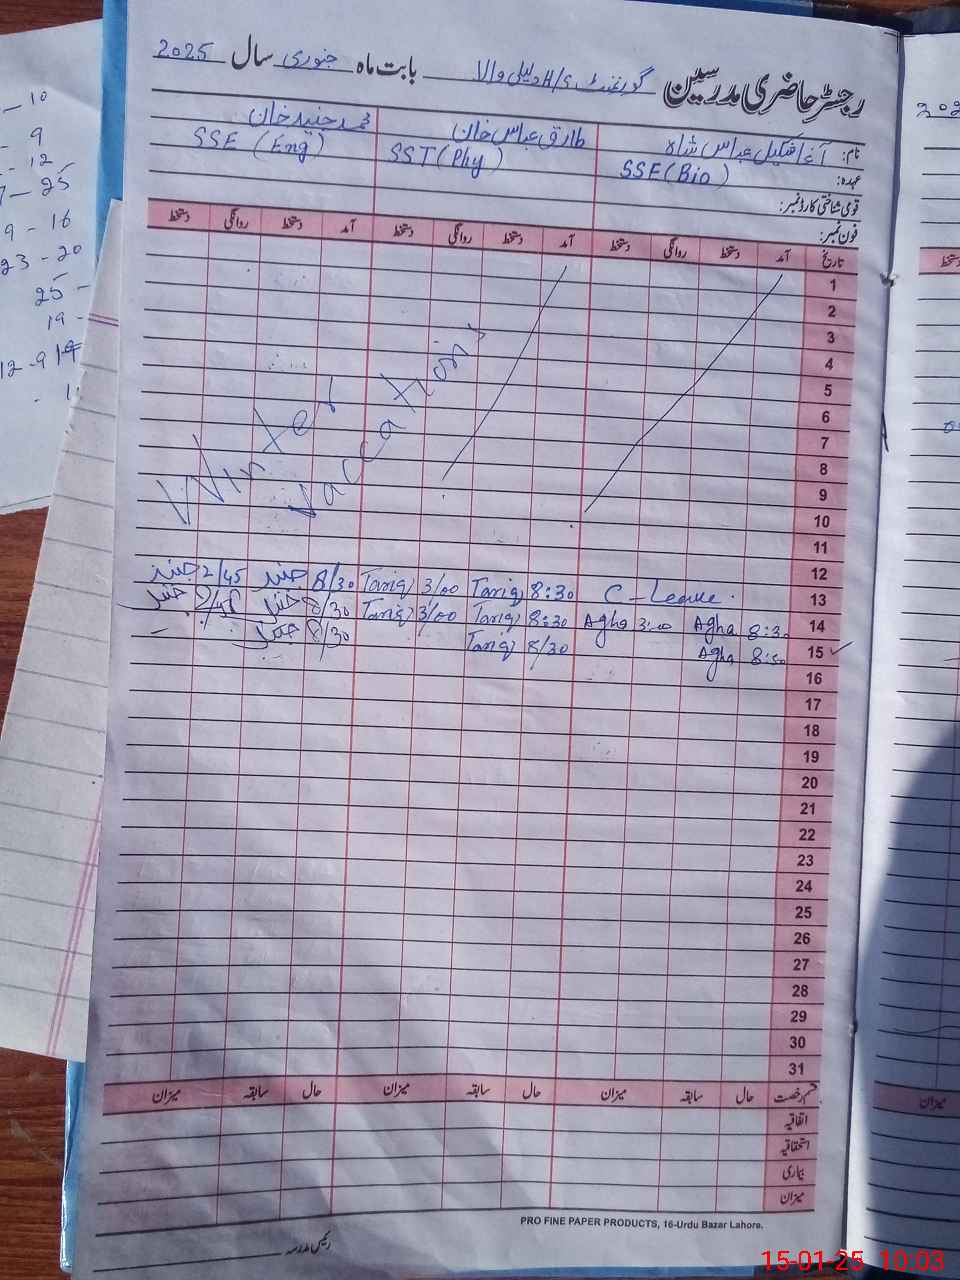 رجسٹر حاضری مدرسین گورنمنٹ H/S دلیلی والا بابت ماہ جنوری سال 2025
نام: آغا شکیل عباس شاہ طارق عباس خان محمد جنید خان
عہدہ: SSE (Bio) SST (Phy) SSE (Eng)
قومی شناختی کارڈ نمبر:
فون نمبر:
تاریخ آمد دستخط روانگی دستخط آمد دستخط روانگی دستخط آمد دستخط روانگی دستخط
1
2
3
4
5
6
7
8
9
10
11
Winter
Vaccations
12
13 C-Leave. 8:30 Tariq 3/00 Tariq 8/30 جنید 2/45 جنید
14 8:30 Agha 3:00 Agha 8:30 Tariq 3/00 Tariq 8/30 جنید 2/45 جنید
15 8:30 Agha 8/30 Tariq 8/30 جنید
16
17
18
19
20
21
22
23
24
25
26
27
28
29
30
31
قسم رخصت حال سابقہ میزان حال سابقہ میزان حال سابقہ میزان
اتفاقیہ
استحقاقیہ
بیماری
میزان
PRO FINE PAPER PRODUCTS, 16-Urdu Bazar Lahore.
رئیس مدرسہ
10
9
12
25
9 - 16
23 - 20
25 -
19 -
12 - 9
202
دستخط
میزان
15-01-25 10:03